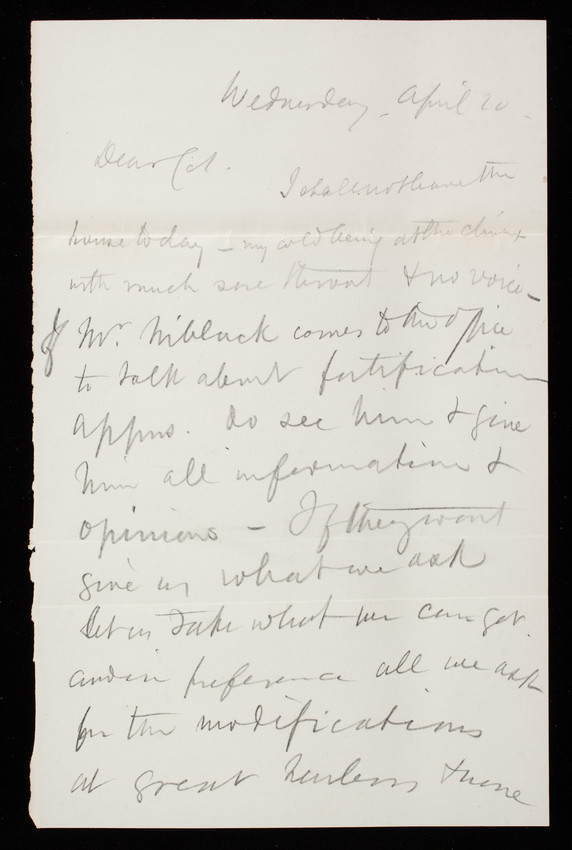 Wednesday - April 20 -
Dear Col.
I shall not leave the
house today - my cold being at the climax
with much sore throat & no voice -
If Mr. Niblack comes to the office
to talk about fortification
appns. do see him & give
him all information &
opinions - If they wont
give us what we ask
let us take what we can get
and in preference all we ask
for the modifications
at great harbors & none